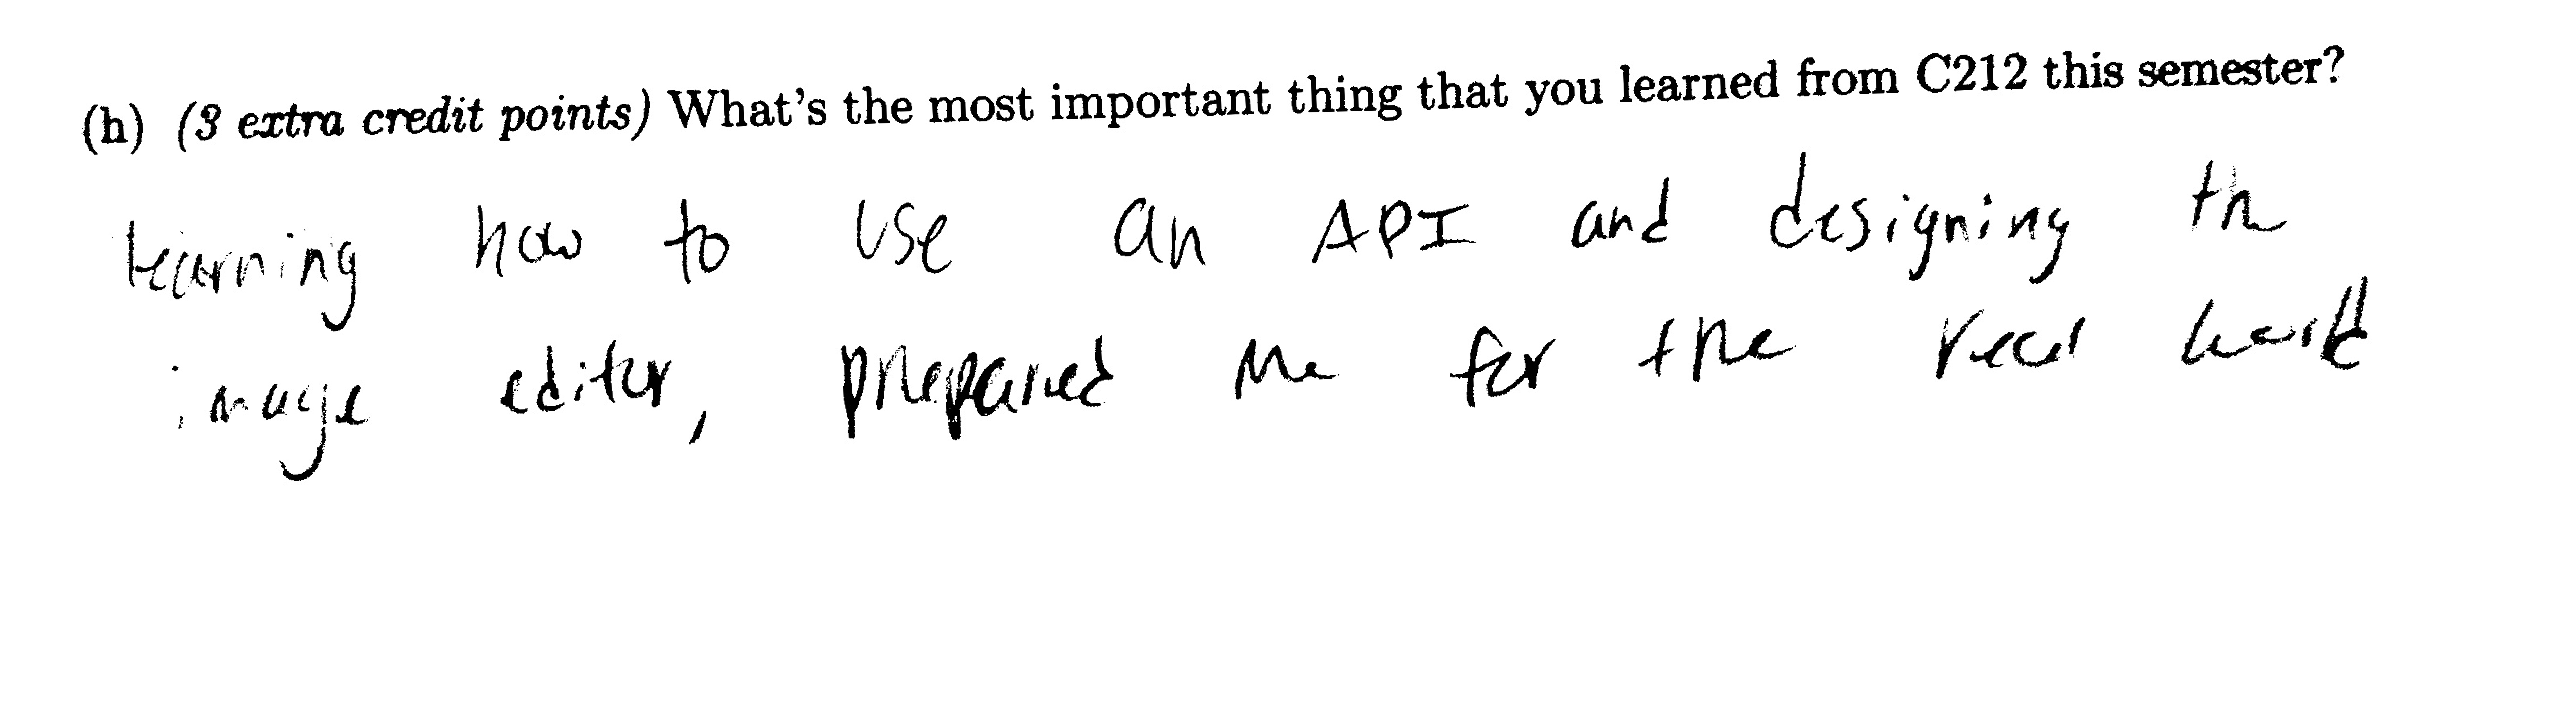 (h) (3 extra credit points) What's the most important thing that you learned from C212 this semester?
learning how to use an API and designing th
image editor, prepared me for the real world